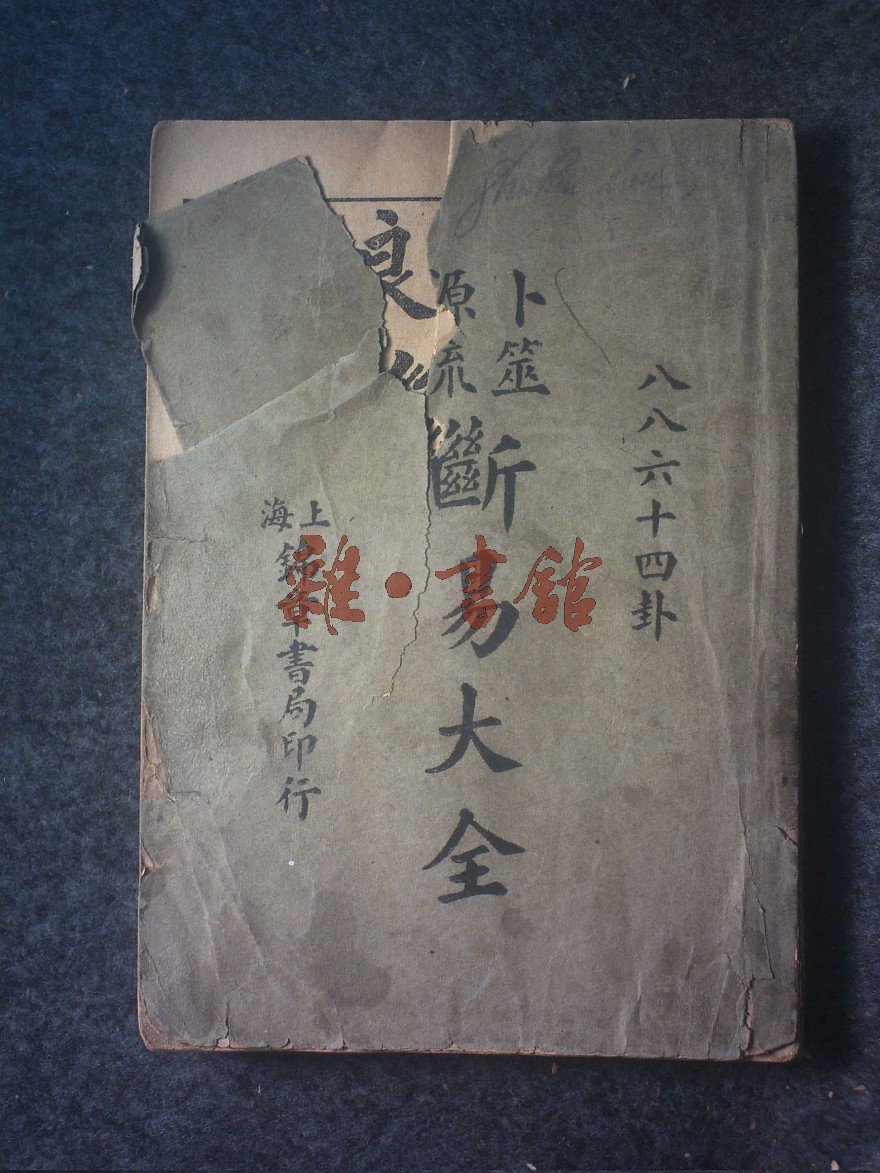 八八六十四卦
卜筮
源流
斷易大全
上海
銘章書局印行
雜·書館